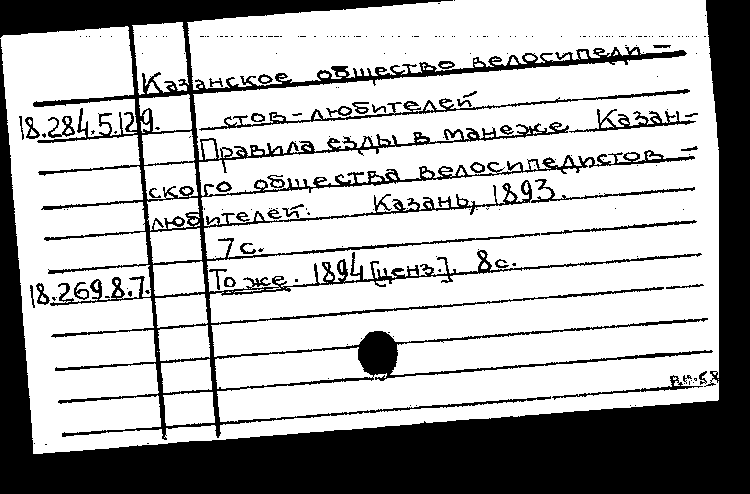 Казанское общество велосипеди-
18.284.5.129. стов-любителей
Правила езды в манеже Казан-
ского общества велосипедистов-
любителей. Казань, 1893.
7 с.
18.269.8.7. То же. 1894 [ценз.]. 8 с.